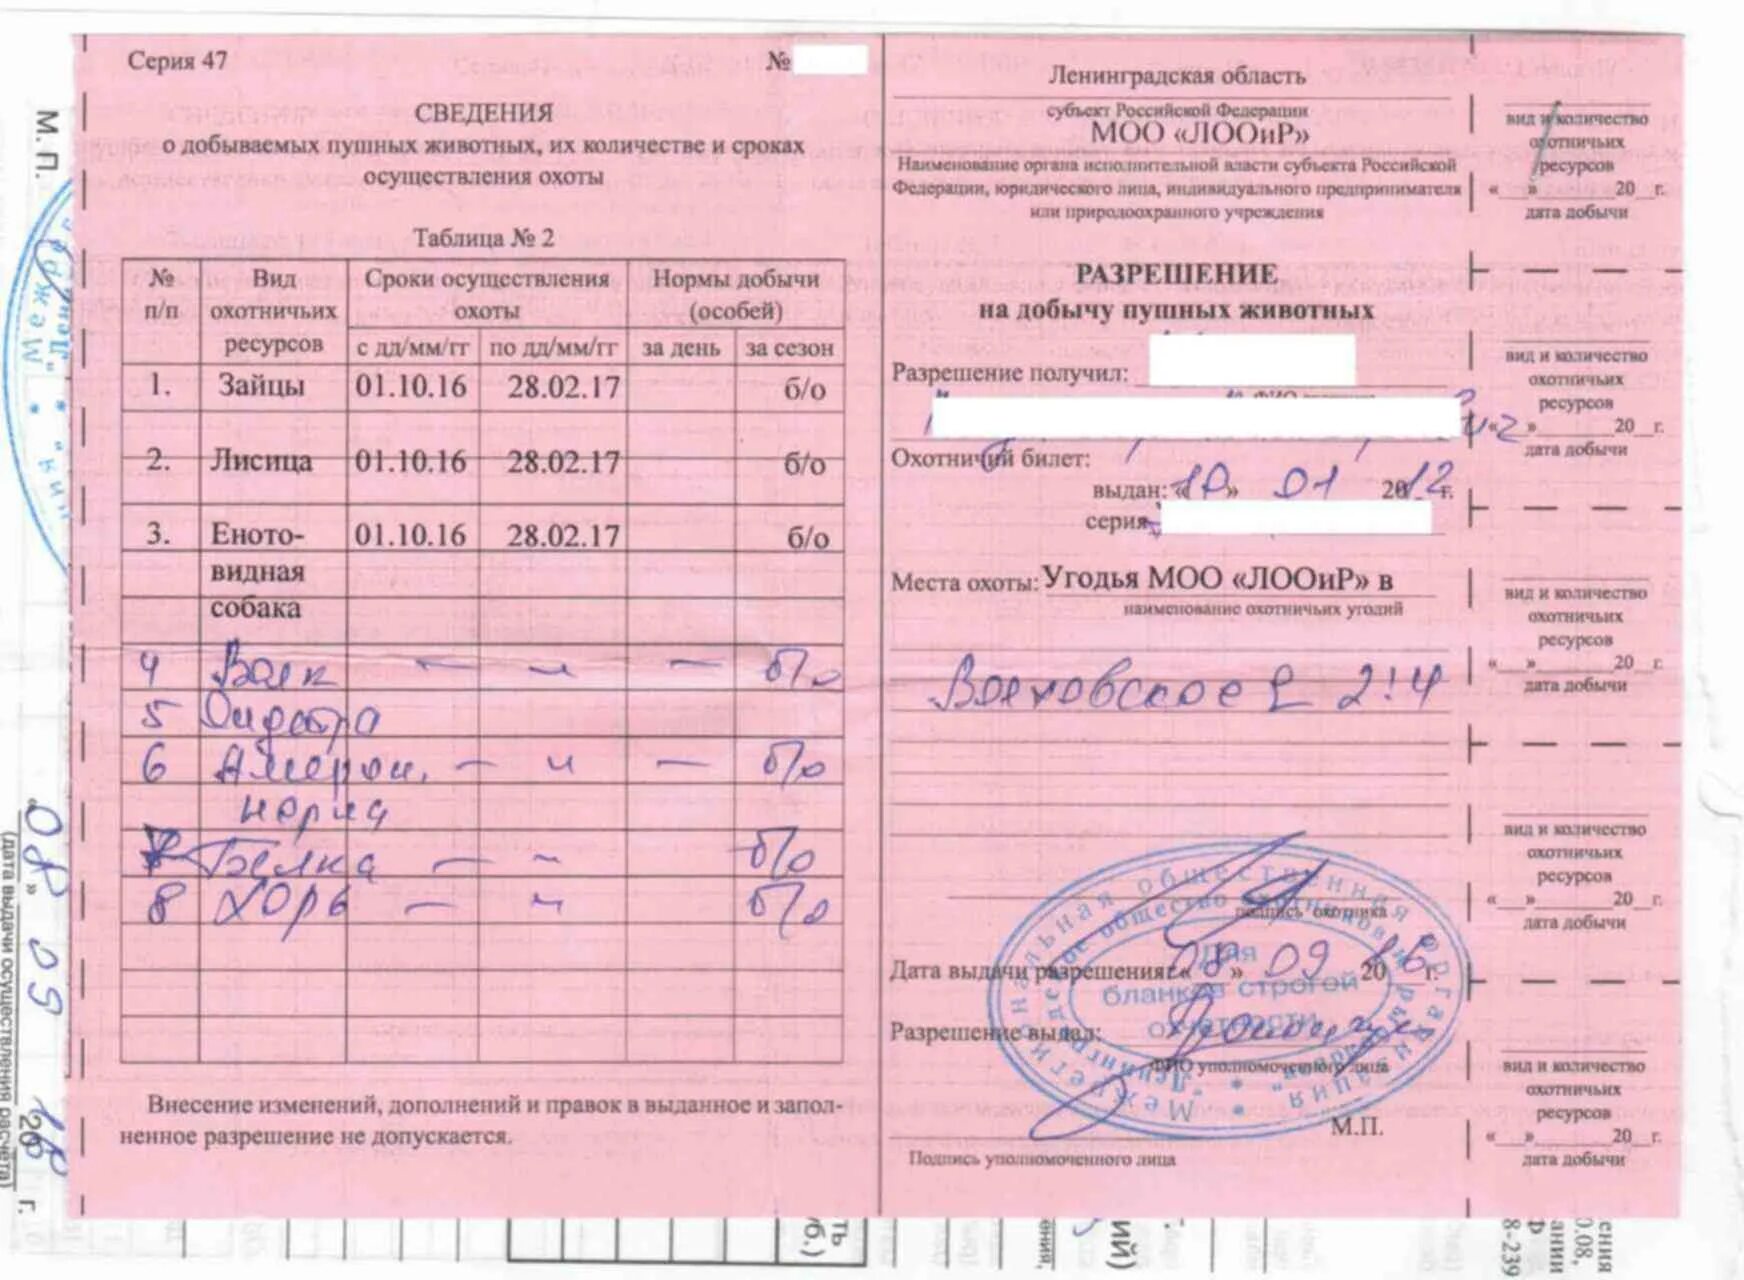 Серия 47 №
СВЕДЕНИЯ
о добываемых пушных животных, их количестве и сроках
осуществления охоты
Таблица № 2
№ п/п Вид охотничьих ресурсов Сроки осуществления охоты Нормы добычи (особей)
с дд/мм/гг по дд/мм/гг за день за сезон
1. Зайцы 01.10.16 28.02.17 б/о
2. Лисица 01.10.16 28.02.17 б/о
3. Еното- 01.10.16 28.02.17 б/о
видная
собака
4 Волк — и — б/о
5 Ондатра
6 Америк. — и — б/о
норка
7 Белка — и б/о
8 Хорь — и б/о
Внесение изменений, дополнений и правок в выданное и запол-
ненное разрешение не допускается.
Ленинградская область
субъект Российской Федерации
МОО «ЛООиР»
Наименование органа исполнительной власти субъекта Российской
Федерации, юридического лица, индивидуального предпринимателя
или природоохранного учреждения
РАЗРЕШЕНИЕ
на добычу пушных животных
Разрешение получил:
Охотничий билет:
выдан: «10» 01 2012 г.
серия
Места охоты: Угодья МОО «ЛООиР» в
наименование охотничьих угодий
Волховское 2:4
подпись охотника
Дата выдачи разрешения: «08» 09 2016 г.
Разрешение выдал:
ФИО уполномоченного лица
М.П.
Подпись уполномоченного лица
Для
бланков строгой
отчетности
Межрегиональная общественная организация
"Ленинградское общество охотников и рыболовов"
вид и количество
охотничьих
ресурсов
«__»______20__г.
дата добычи
вид и количество
охотничьих
ресурсов
«__»______20__г.
дата добычи
вид и количество
охотничьих
ресурсов
«__»______20__г.
дата добычи
вид и количество
охотничьих
ресурсов
«__»______20__г.
дата добычи
вид и количество
охотничьих
ресурсов
«__»______20__г.
дата добычи
М. П.
"08" 09 2016 г.
(дата выдачи осуществления расчёта)